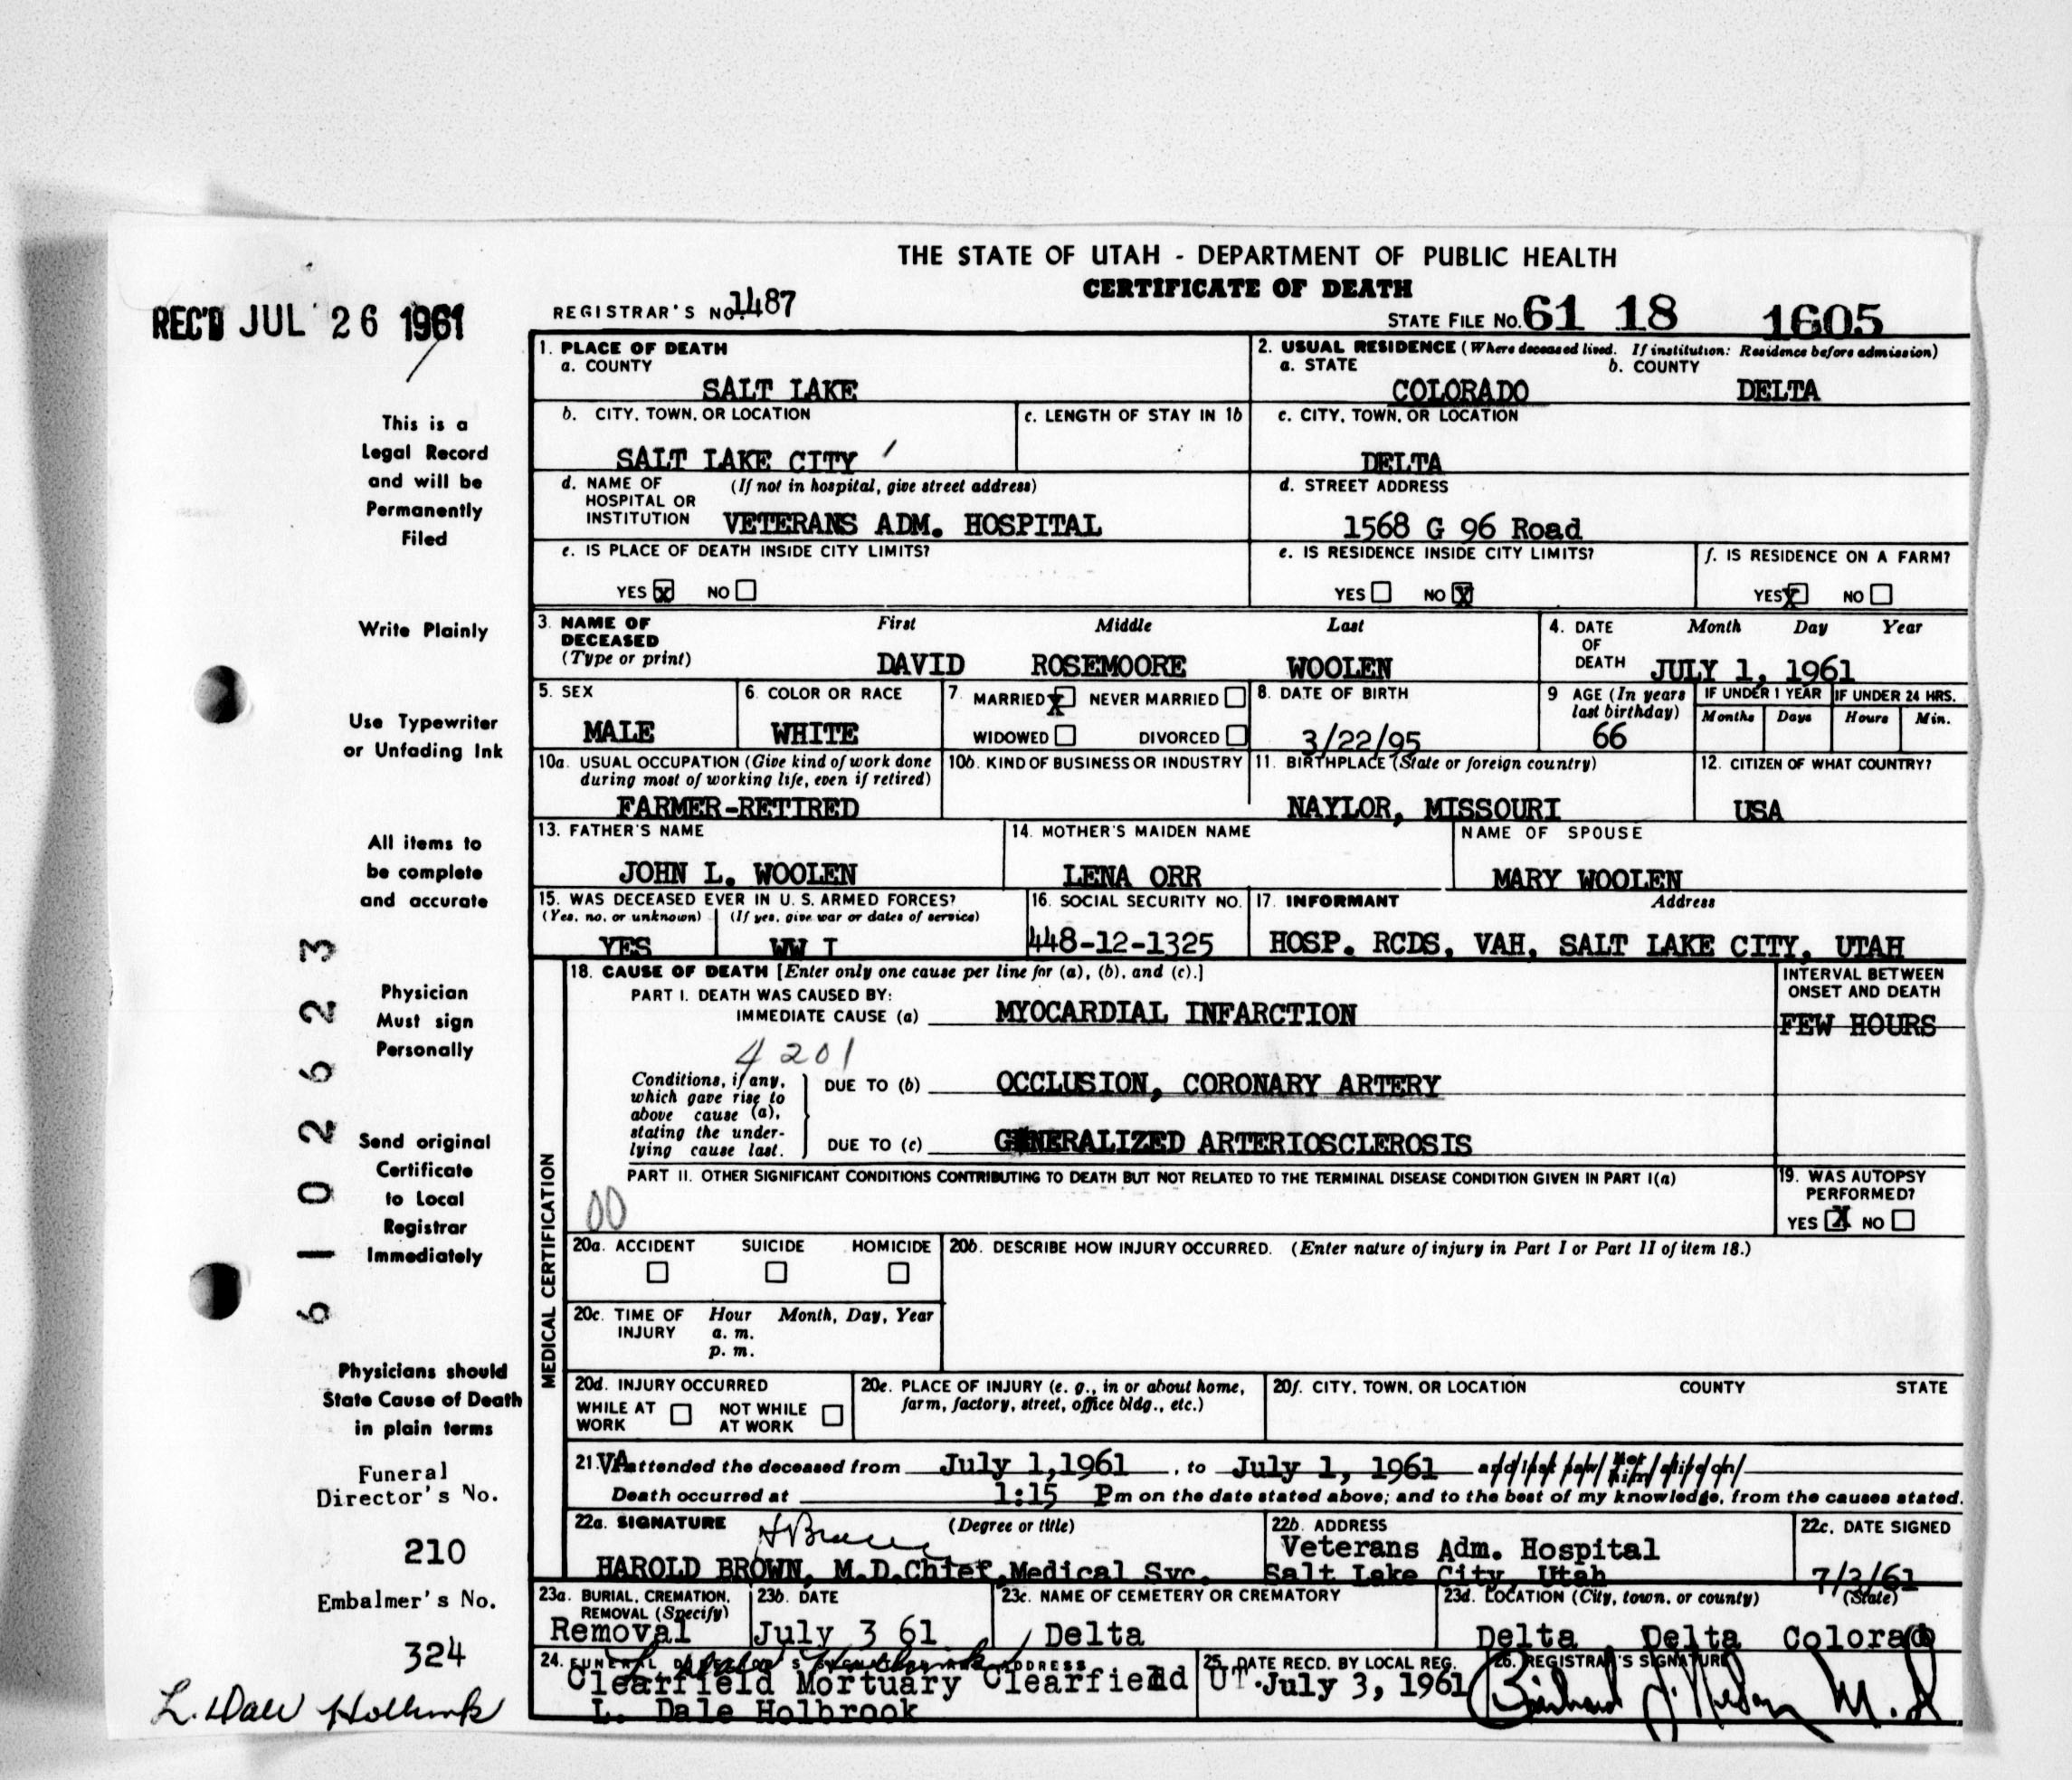 THE STATE OF UTAH - DEPARTMENT OF PUBLIC HEALTH
CERTIFICATE OF DEATH
REC'D JUL 26 1961
REGISTRAR'S NO. 1487
STATE FILE NO. 61 18 1605
This is a
Legal Record
and will be
Permanently
Filed
Write Plainly
Use Typewriter
or Unfading Ink
All items to
be complete
and accurate
Physician
Must sign
Personally
Send original
Certificate
to Local
Registrar
Immediately
Physicians should
State Cause of Death
in plain terms
Funeral
Director's No.
210
Embalmer's No.
324
L. Dale Holbrook
61022623
1. PLACE OF DEATH
a. COUNTY
SALT LAKE
2. USUAL RESIDENCE (Where deceased lived. If institution: Residence before admission)
a. STATE b. COUNTY
COLORADO DELTA
b. CITY, TOWN, OR LOCATION
SALT LAKE CITY
c. LENGTH OF STAY IN 1b
c. CITY, TOWN, OR LOCATION
DELTA
d. NAME OF (If not in hospital, give street address)
HOSPITAL OR
INSTITUTION VETERANS ADM. HOSPITAL
d. STREET ADDRESS
1568 G 96 Road
e. IS PLACE OF DEATH INSIDE CITY LIMITS?
YES X NO
e. IS RESIDENCE INSIDE CITY LIMITS?
YES NO X
f. IS RESIDENCE ON A FARM?
YES X NO
3. NAME OF First Middle Last
DECEASED
(Type or print) DAVID ROSEMOORE WOOLEN
4. DATE Month Day Year
OF
DEATH JULY 1, 1961
5. SEX
MALE
6. COLOR OR RACE
WHITE
7. MARRIED X NEVER MARRIED
WIDOWED DIVORCED
8. DATE OF BIRTH
3/22/95
9 AGE (In years
last birthday)
66
IF UNDER 1 YEAR IF UNDER 24 HRS.
Months Days Hours Min.
10a. USUAL OCCUPATION (Give kind of work done
during most of working life, even if retired)
FARMER-RETIRED
10b. KIND OF BUSINESS OR INDUSTRY
11. BIRTHPLACE (State or foreign country)
NAYLOR, MISSOURI
12. CITIZEN OF WHAT COUNTRY?
USA
13. FATHER'S NAME
JOHN L. WOOLEN
14. MOTHER'S MAIDEN NAME
LENA ORR
NAME OF SPOUSE
MARY WOOLEN
15. WAS DECEASED EVER IN U. S. ARMED FORCES?
(Yes, no. or unknown) (If yes, give war or dates of service)
YES WW I
16. SOCIAL SECURITY NO.
448-12-1325
17. INFORMANT Address
HOSP. RCDS, VAH, SALT LAKE CITY, UTAH
MEDICAL CERTIFICATION
18. CAUSE OF DEATH [Enter only one cause per line for (a), (b), and (c).]
PART I. DEATH WAS CAUSED BY:
IMMEDIATE CAUSE (a) MYOCARDIAL INFARCTION
INTERVAL BETWEEN
ONSET AND DEATH
FEW HOURS
4201
Conditions, if any,
which gave rise to
above cause (a),
stating the under-
lying cause last.
DUE TO (b) OCCLUSION, CORONARY ARTERY
DUE TO (c) GENERALIZED ARTERIOSCLEROSIS
PART II. OTHER SIGNIFICANT CONDITIONS CONTRIBUTING TO DEATH BUT NOT RELATED TO THE TERMINAL DISEASE CONDITION GIVEN IN PART I(a)
00
19. WAS AUTOPSY
PERFORMED?
YES X NO
20a. ACCIDENT SUICIDE HOMICIDE
20b. DESCRIBE HOW INJURY OCCURRED. (Enter nature of injury in Part I or Part II of item 18.)
20c. TIME OF Hour Month, Day, Year
INJURY a. m.
p. m.
20d. INJURY OCCURRED
WHILE AT NOT WHILE
WORK AT WORK
20e. PLACE OF INJURY (e. g., in or about home,
farm, factory, street, office bldg., etc.)
20f. CITY, TOWN, OR LOCATION COUNTY STATE
21. VA attended the deceased from July 1,1961, to July 1, 1961 and last saw her him alive on
Death occurred at 1:15 Pm on the date stated above; and to the best of my knowledge, from the causes stated.
22a. SIGNATURE (Degree or title)
HAROLD BROWN, M.D.Chief,Medical Svc.
22b. ADDRESS
Veterans Adm. Hospital
Salt Lake City, Utah
22c. DATE SIGNED
7/3/61
23a. BURIAL, CREMATION,
REMOVAL (Specify)
Removal
23b. DATE
July 3 61
23c. NAME OF CEMETERY OR CREMATORY
Delta
23d. LOCATION (City, town, or county) (State)
Delta Delta Colorado
24. FUNERAL DIRECTOR'S SIGNATURE ADDRESS
Clearfield Mortuary Clearfield UT.
L. Dale Holbrook
25. DATE RECD. BY LOCAL REG.
July 3, 1961
26. REGISTRAR'S SIGNATURE